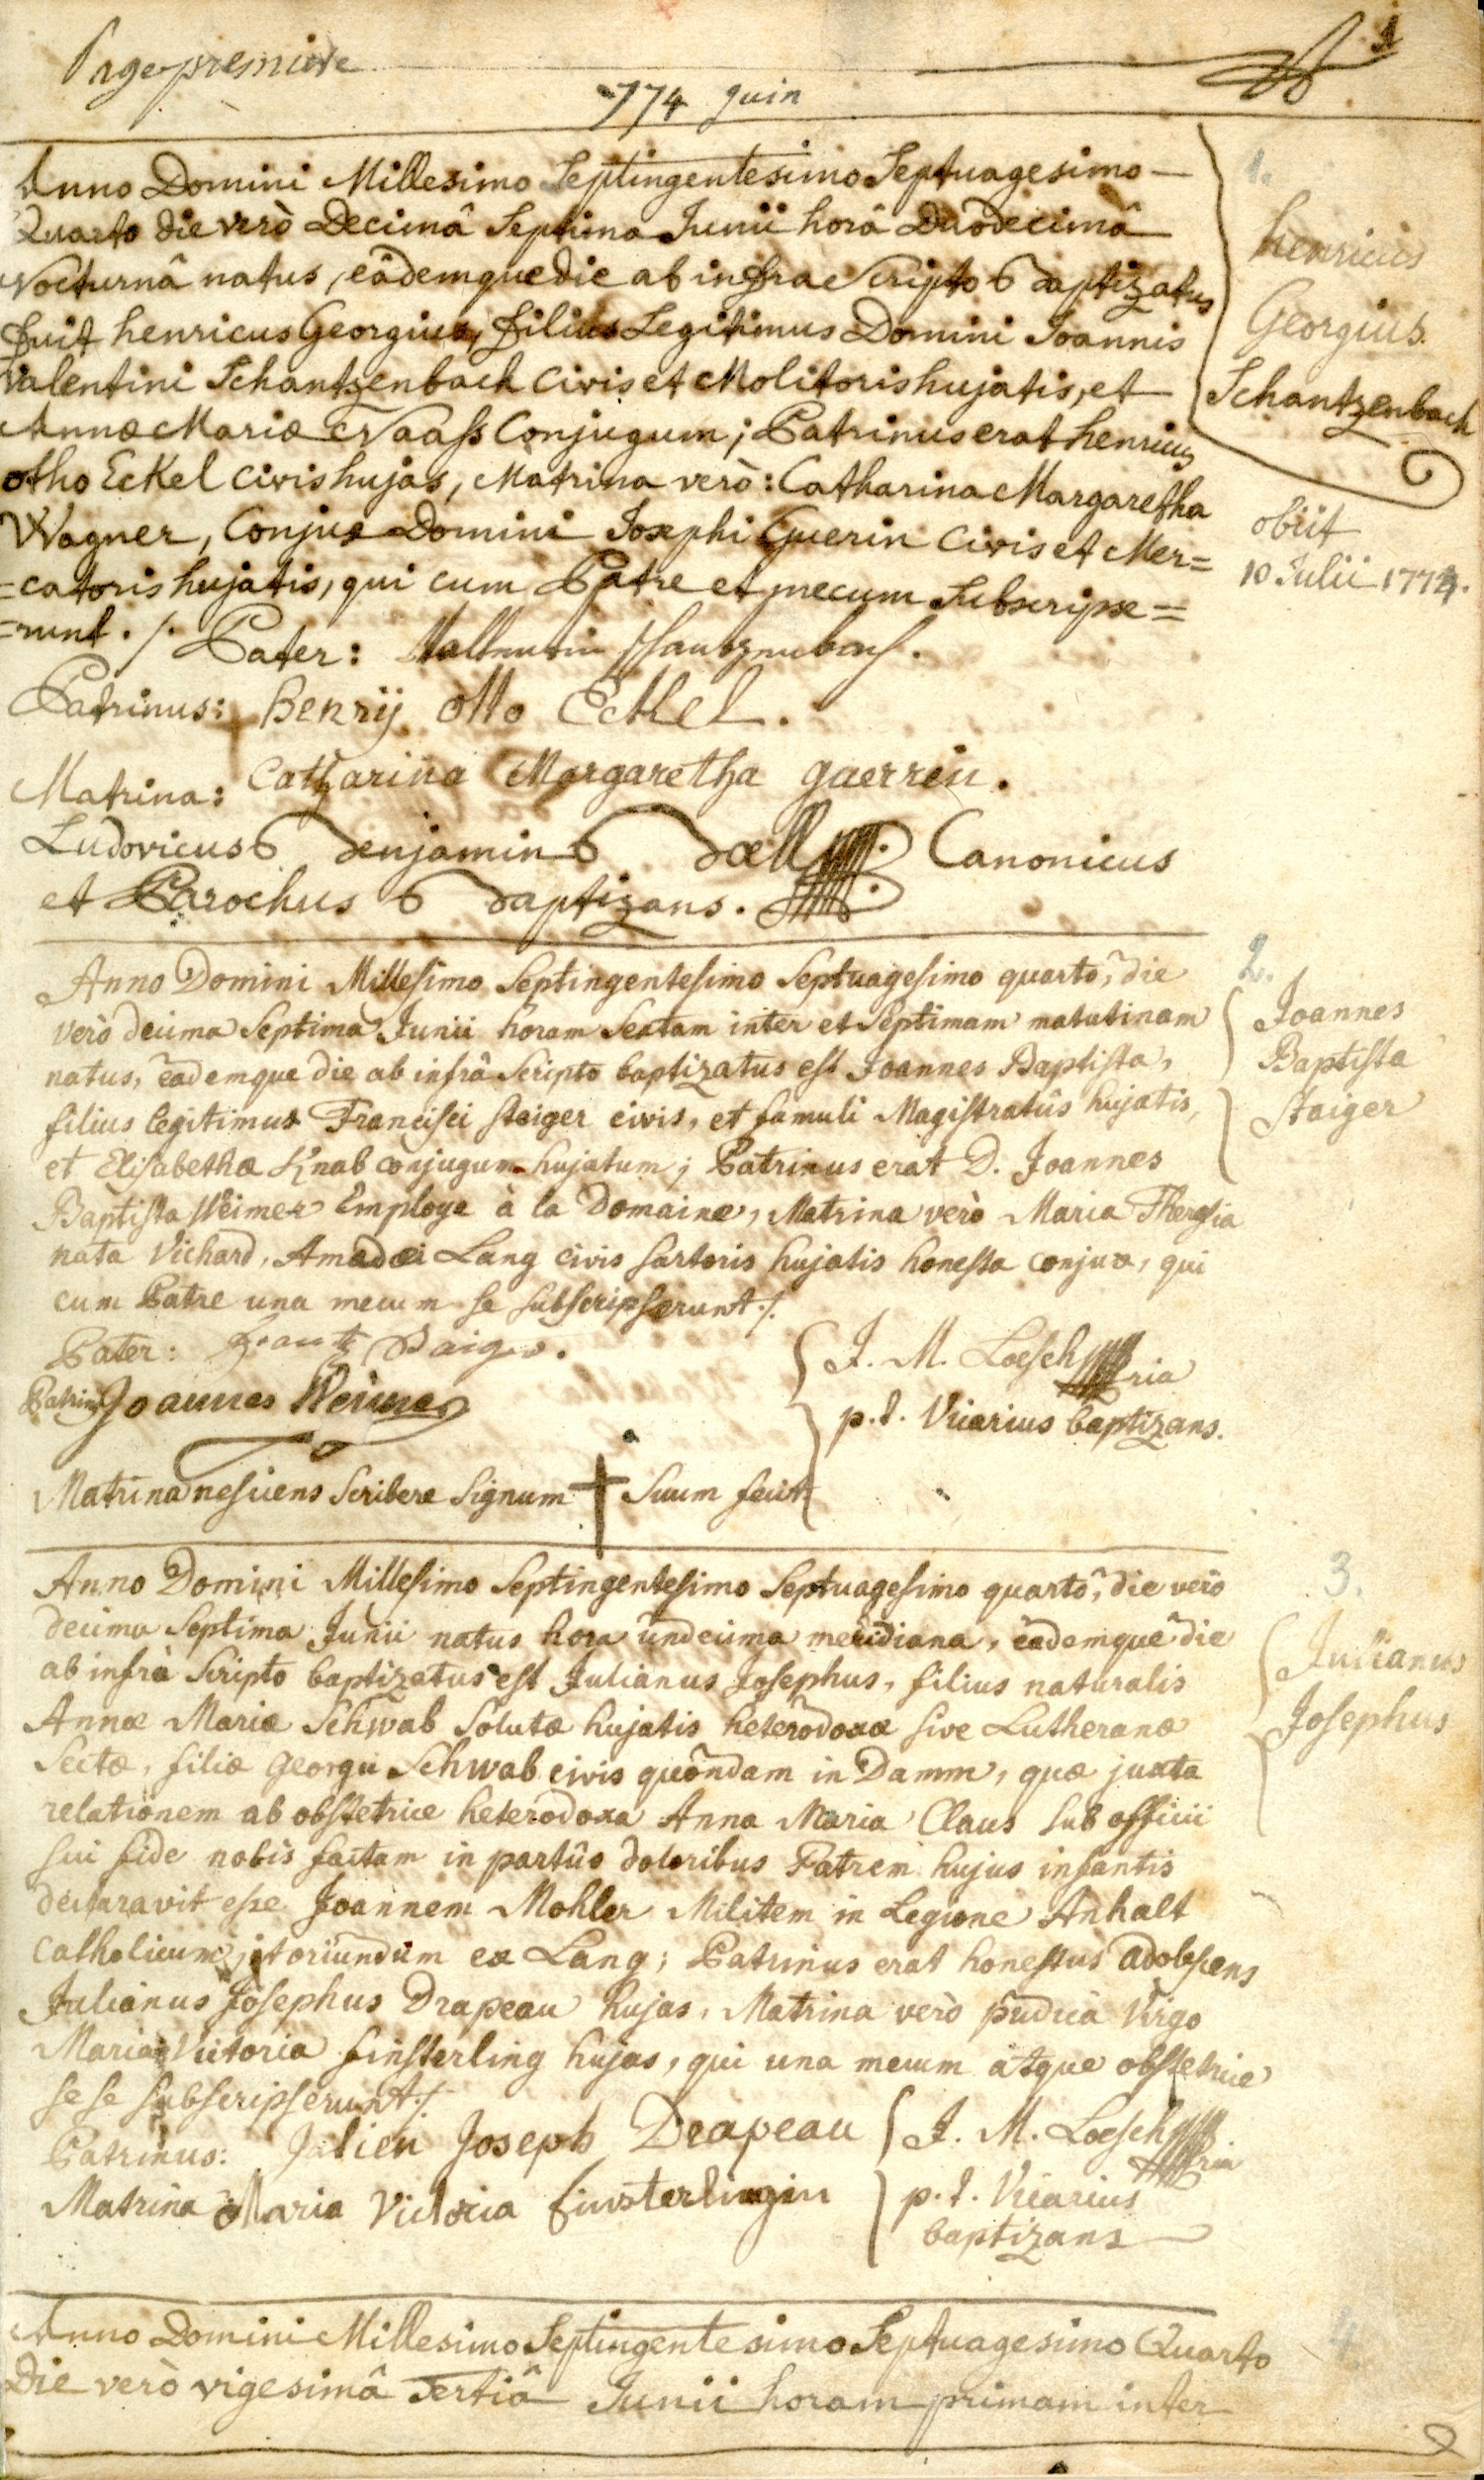 Page premiere
1
1774 Juin
Anno Domini Millesimo Septingentesimo Septuagesimo
Quarto die verò Decimâ Septima Junii horâ Duodecimâ
Nocturnâ natus, eâdemque die ab infra Scripto Baptizatus
fuit henricus Georgius, filius Legitimus Domini Joannis
Valentini Schantzenbach Civis et Molitoris hujatis, et
Annæ Mariæ Naass Conjugum; Patrinus erat henricus
otho Eckel civis hujas, Matrina verò: Catharina Margaretha
Wagner, Conjux Domini Josephi Guerin Civis et Mer=
=catoris hujatis, qui cum Patre et mecum Subscripse=
=runt ./.
1.
henricus
Georgius
Schantzenbach
obiit
10 Julii 1774.
Pater:
Patrinus: Henrij Otto Eckel.
Matrina: Catharina Margaretha guerrein.
Ludovicus Benjamin Boell Canonicus
et Parochus Baptizans.
Anno Domini Millesimo Septingentesimo Septuagesimo quartô, die
verò decima Septima Junii horam Sextam inter et Septimam matutinam
natus, eâdemque die ab infrâ Scripto baptizatus est Joannes Baptista,
filius legitimus Francisci Staiger civis, et famuli Magistratûs hujatis,
et Elisabethæ Knab conjugum hujatum; Patrinus erat D. Joannes
Baptista Weimer Employe à la Domaine, Matrina verò Maria Theresia
nata Vichard, Amadei Lang civis Sartoris hujatis honesta conjux, qui
cum Patre una mecum se subscripserunt ./.
2.
Joannes
Baptista
Staiger
Pater: Staiger.
Patrin Joannes Weimer
Matrina nesciens Scribere Signum † Suum fecit
J. M. Loesch pria
p. t. Vicarius baptizans.
Anno Domini Millesimo Septingentesimo Septuagesimo quartô, die verò
decima Septima Junii natus hora undecima meridiana, eâdemque die
ab infrà Scripto baptizatus est Julianus Josephus, filius naturalis
Annæ Mariæ Schwab Solutæ hujatis heterodoxæ sive Lutheranæ
Sectæ, filiæ Georgii Schwab civis quondam in Damm, quæ juxta
relationem ab obstetrice heterodoxa Anna Maria Claus sub officii
sui fide nobis factam in partûs doloribus Patrem hujus infantis
declaravit esse Joannem Mohler Militem in Legione Anhalt
Catholicum, et oriundum ex Lang; Patrinus erat honestus adolescens
Julianus Josephus Drapeau hujas, Matrina verò pudica Virgo
Maria Victoria finsterling hujas, qui una mecum atque obstetrice
sese subscripserunt ./.
3.
Julianus
Josephus
Patrinus: Julien Joseph Drapeau
Matrina Maria Victoria finsterlingin
J. M. Loesch pria
p. t. Vicarius
baptizans
Anno Domini Millesimo Septingentesimo Septuagesimo Quarto
Die verò vigesimâ Tertiâ Junii horam primam inter
4.